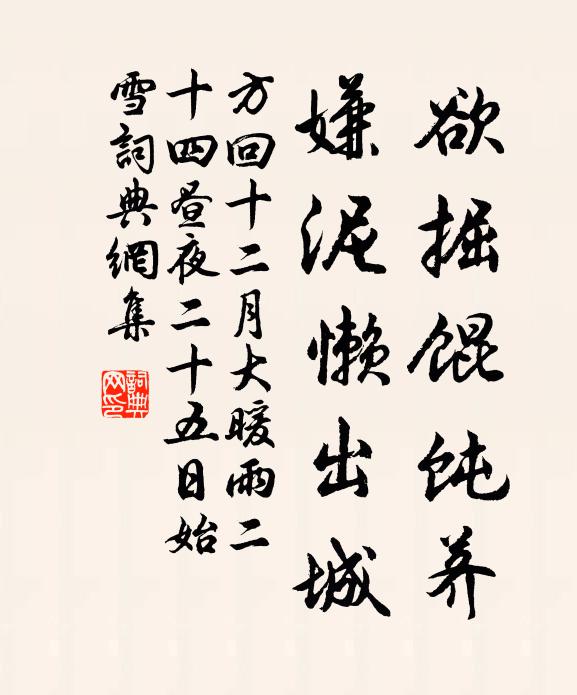 欲掘馄饨荞
嫌泥懒出城
方回十二月大暖雨二
十四昼夜二十五日始
雪詞典網集
詞典
网印